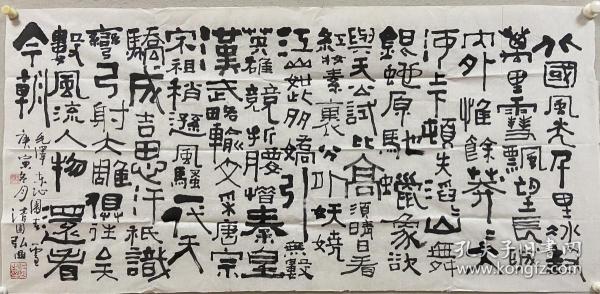 北國風光千里冰封
萬里雪飄望長城
内外惟餘莽莽大
河上下頓失滔滔山舞
銀蛇原馳蠟象欲
與天公試比高須晴日看
紅妝素裹分外妖嬈
江山如此多嬌引無數
英雄競折腰惜秦皇
漢武略輸文采唐宗
宋祖稍遜風騷一代天
驕成吉思汗祇識
彎弓射大雕俱往矣
數風流人物還看
今朝
毛澤東沁園春雪
庚寅冬月
孔夫子旧书网
www.kongfz.com